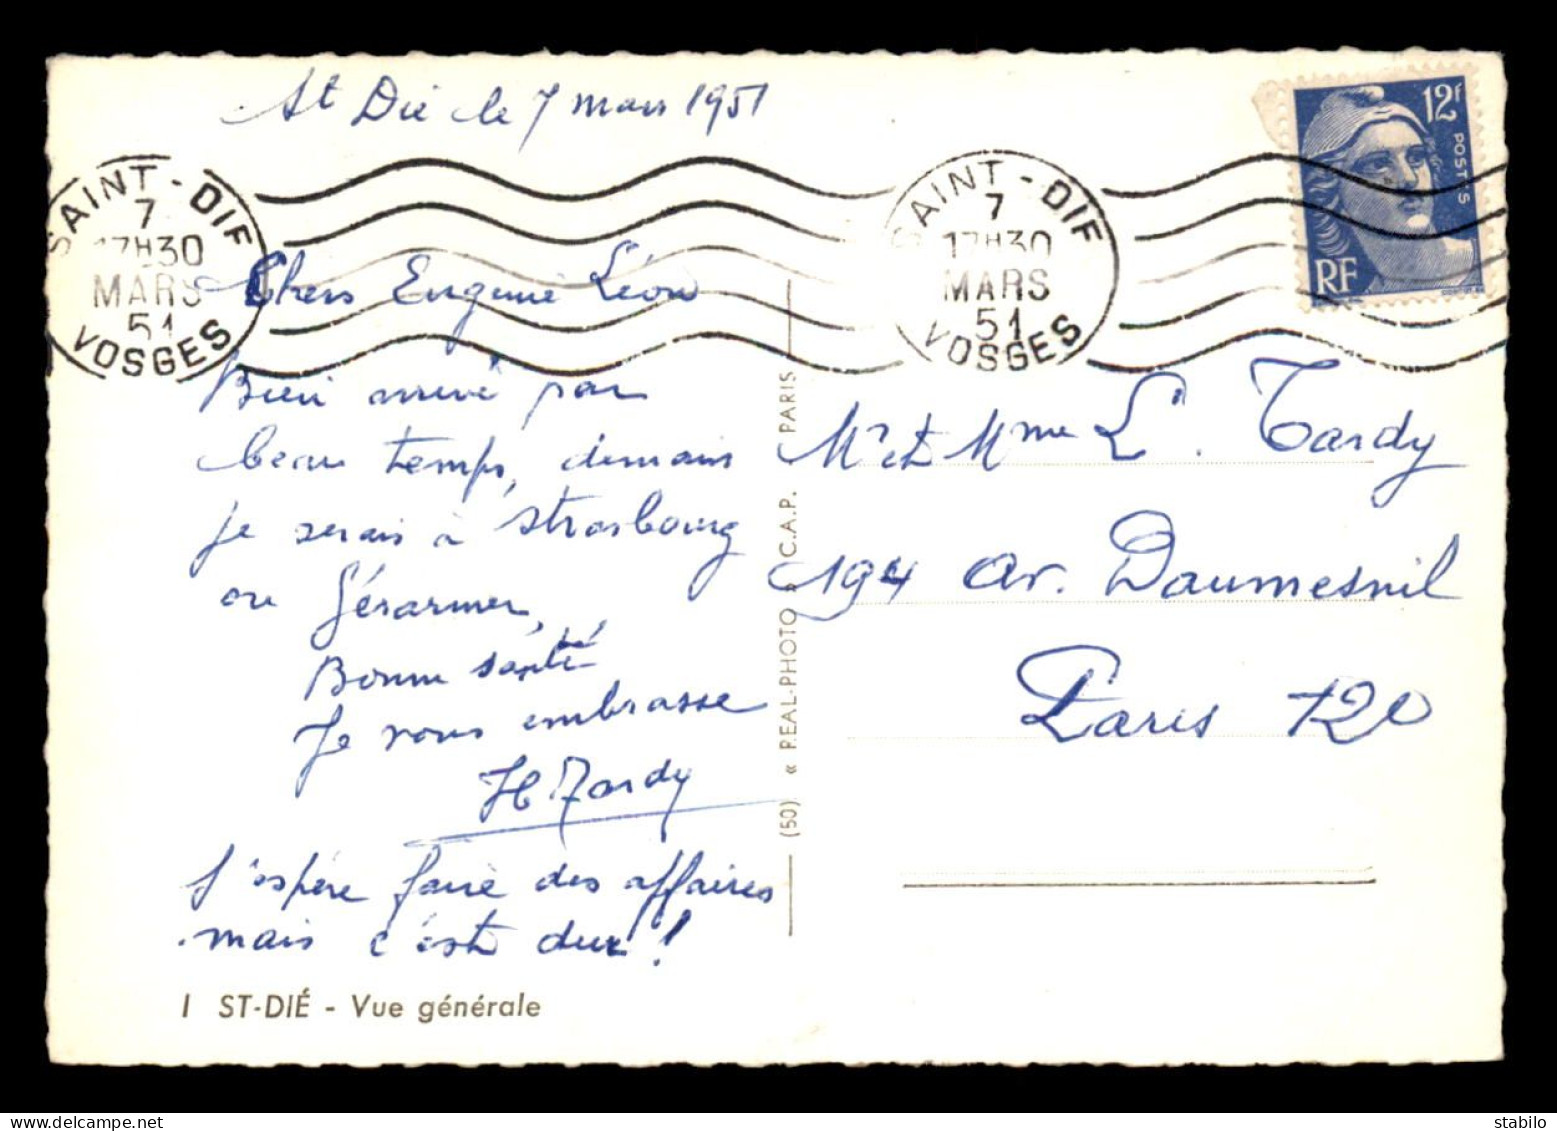 St Dié le 7 mars 1951
SAINT-DIE
7
17H30
MARS
51
VOSGES
SAINT-DIE
7
17H30
MARS
51
VOSGES
12F
POSTES
RF
Chers Eugenie Léon
Bien arrivé par
beau temps, demain
je serais à Strasbourg
ou Gérarmer,
Bonne santé
Je vous embrasse
H Tardy
J'espère faire des affaires
mais c'est dur !
I ST-DIÉ - Vue générale
(50) « REAL-PHOTO » C.A.P. PARIS
Mr et Mme L. Tardy
194 av. Daumesnil
Paris 12e
delcampe.net
stabilo